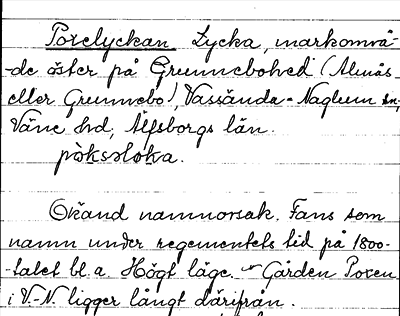 Poxelyckan Lycka, markområ-
de öster på Grunnebohed (Almås
eller Grunnebo), Vassända-Naglum sn,
Väne hd, Älfsborgs län.
pòksəlỳka.
Okänd namnorsak. Fans som
namn under regementets tid på 1800-
-talet bl. a. Högt läge. Gården Poxen
i V.-N. ligger långt därifrån.